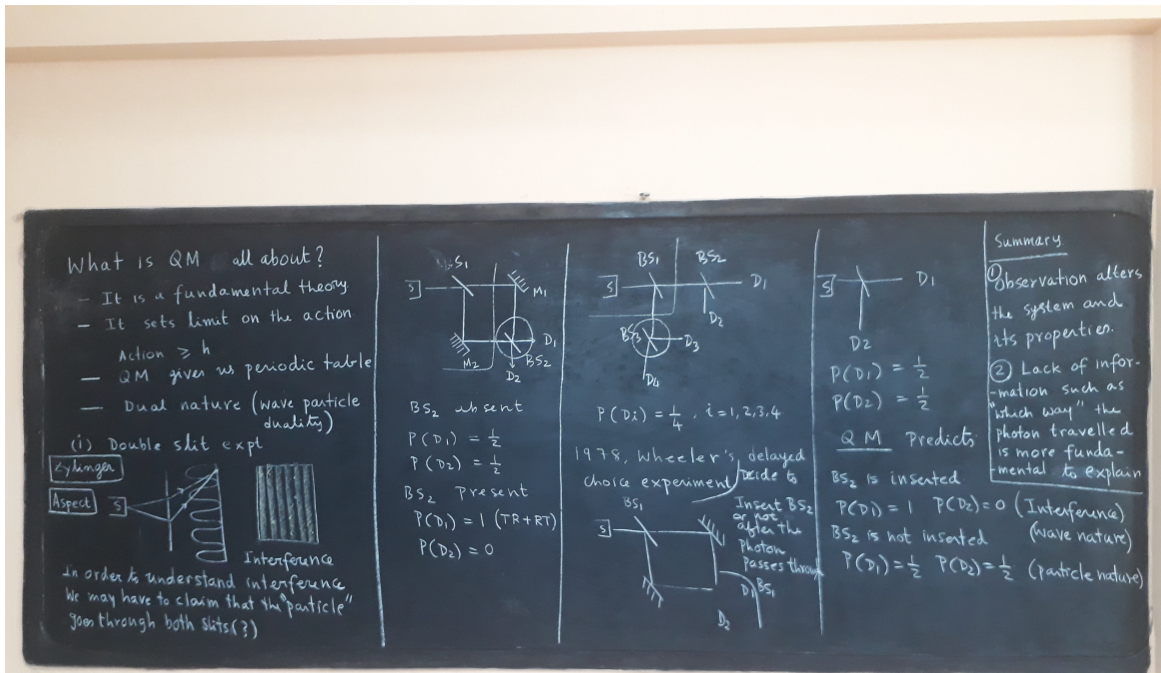 What is QM all about?
- It is a fundamental theory
- It sets limit on the action
Action ≥ h
- QM gives us periodic table
- Dual nature (wave particle
duality)
(i) Double slit expt
Zylinger
Aspect
S
Interference
In order to understand interference
We may have to claim that the "particle"
goes through both slits(?)
BS1
S
M1
D1
M2
BS2
D2
BS2 absent
P(D1) = 1/2
P(D2) = 1/2
BS2 Present
P(D1) = 1 (TR+RT)
P(D2) = 0
BS1
BS2
S
D1
D2
BS3
D3
D4
P(Di) = 1/4, i=1,2,3,4
1978, Wheeler's, delayed
choice experiment
decide to
Insert BS2
or not
after the
photon
passes through
BS1
BS1
S
D1
D2
S
D1
D2
P(D1) = 1/2
P(D2) = 1/2
QM Predicts
BS2 is inserted
P(D1) = 1 P(D2) = 0 (Interference)
(wave nature)
BS2 is not inserted
P(D1) = 1/2 P(D2) = 1/2 (particle nature)
Summary
① Observation alters
the system and
its properties.
② Lack of infor-
-mation such as
"which way" the
photon travelled
is more funda-
-mental to explain